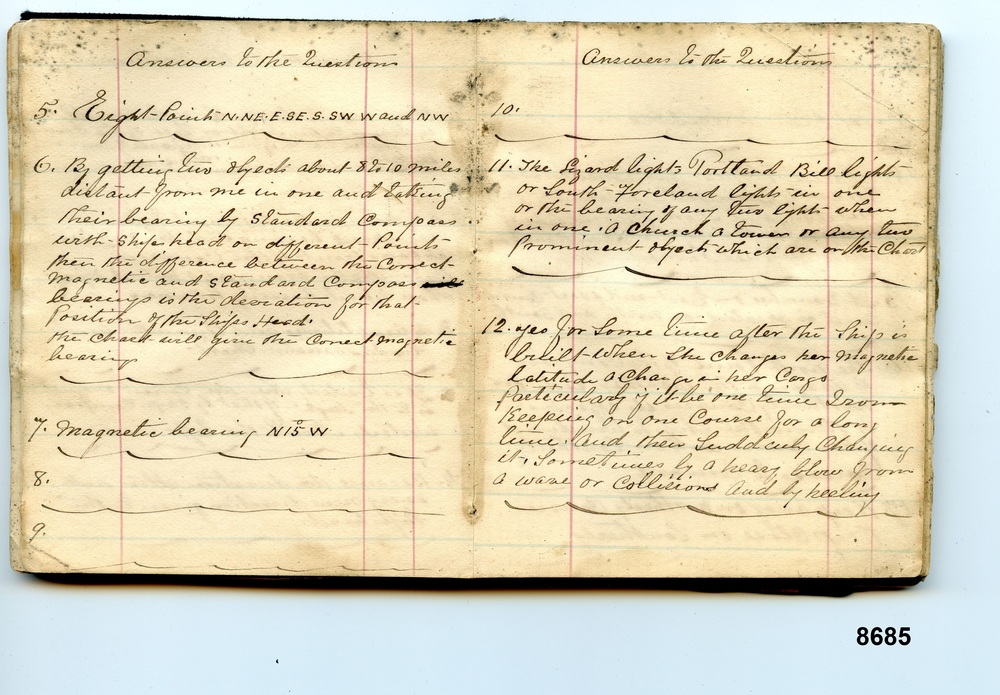 Answers to the Questions
5. Eight Points N. NE. E. SE. S. SW W and NW
6. By getting two objects about 8 to 10 miles
distant from me in one and taking
their bearing by Standard Compass
with Ships head on different Points
then the difference between the Correct
Magnetic and Standard Compass
bearings is the deviation for that
Position of the Ships Head.
the Chart will give the Correct Magnetic
bearing
7. Magnetic bearing N15°W
8.
9.
Answers to the Questions
10.
11. The Lizard lights Portland Bill lights
or South Foreland lights in one
or the bearing of any two lights when
in one. A Church a Tower or any two
Prominent objects which are on the Chart
12. yes for Some time after the Ship is
built When She Changes her Magnetic
latitude a Change in her Cargo
Particularly if it be one time Iron
Keeping on one Course for a long
time and then Suddenly Changing
it. Sometimes by a heavy blow from
a wave or Collisions and by heeling
8685